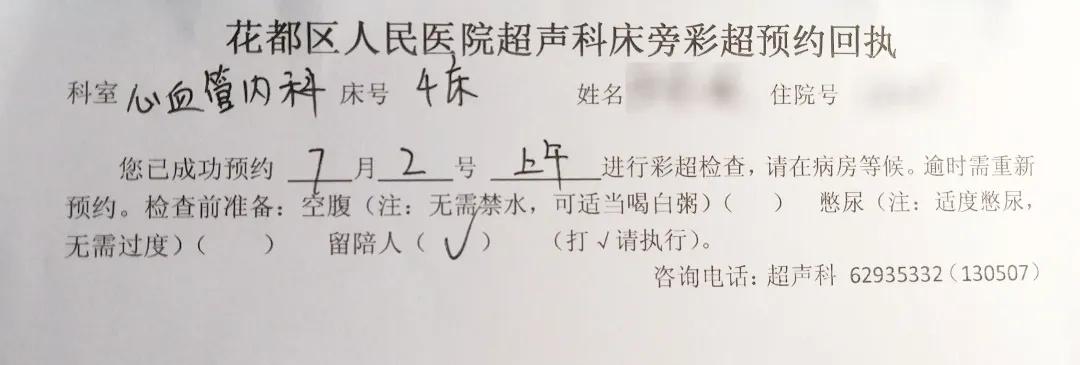 花都区人民医院超声科床旁彩超预约回执
科室 心血管内科 床号 4床 姓名 住院号
您已成功预约 7 月 2 号 上午 进行彩超检查，请在病房等候。逾时需重新
预约。检查前准备：空腹（注：无需禁水，可适当喝白粥）（ ） 憋尿（注：适度憋尿，
无需过度）（ ） 留陪人（√） （打√请执行）。
咨询电话：超声科 62935332（130507）